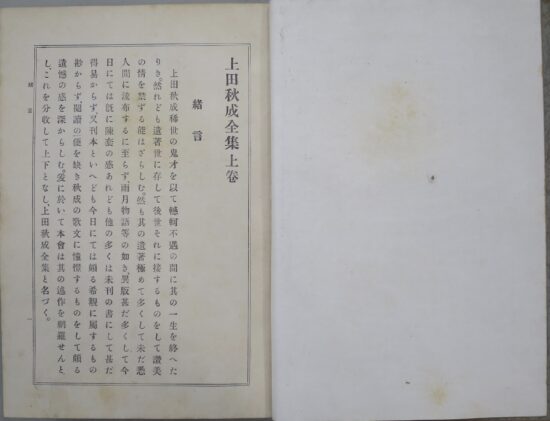 上田秋成全集上卷
緒言
上田秋成稀世の鬼才を以て轗軻不遇の間に其の一生を終へた
りき。然れども遺著世に存して後世それに接するものをして讃美
の情を禁ずる能はざらしむ。然も其の遺著極めて多くして未だ悉く
人間に流布するに至らず、雨月物語等の如き、異版甚だ多くして今
日にては既に陳套の感あれども他の多くは未刊の書にして甚だ
得易からず、又刊本といへども今日にては頗る希覯に屬するもの
尠からず、閲讀の便を缺き秋成の歌文に憧憬するものをして頗る
遺憾の感を深からしむ。爰に於いて本會は其の遺作を網羅せんと
し、これを分收して上下となし、上田秋成全集と名づく。
緒言
一